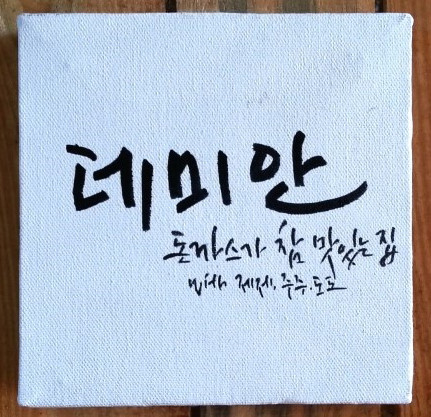 데미안
돈까스가 참 맛있는 집
with 제제. 주주. 도도